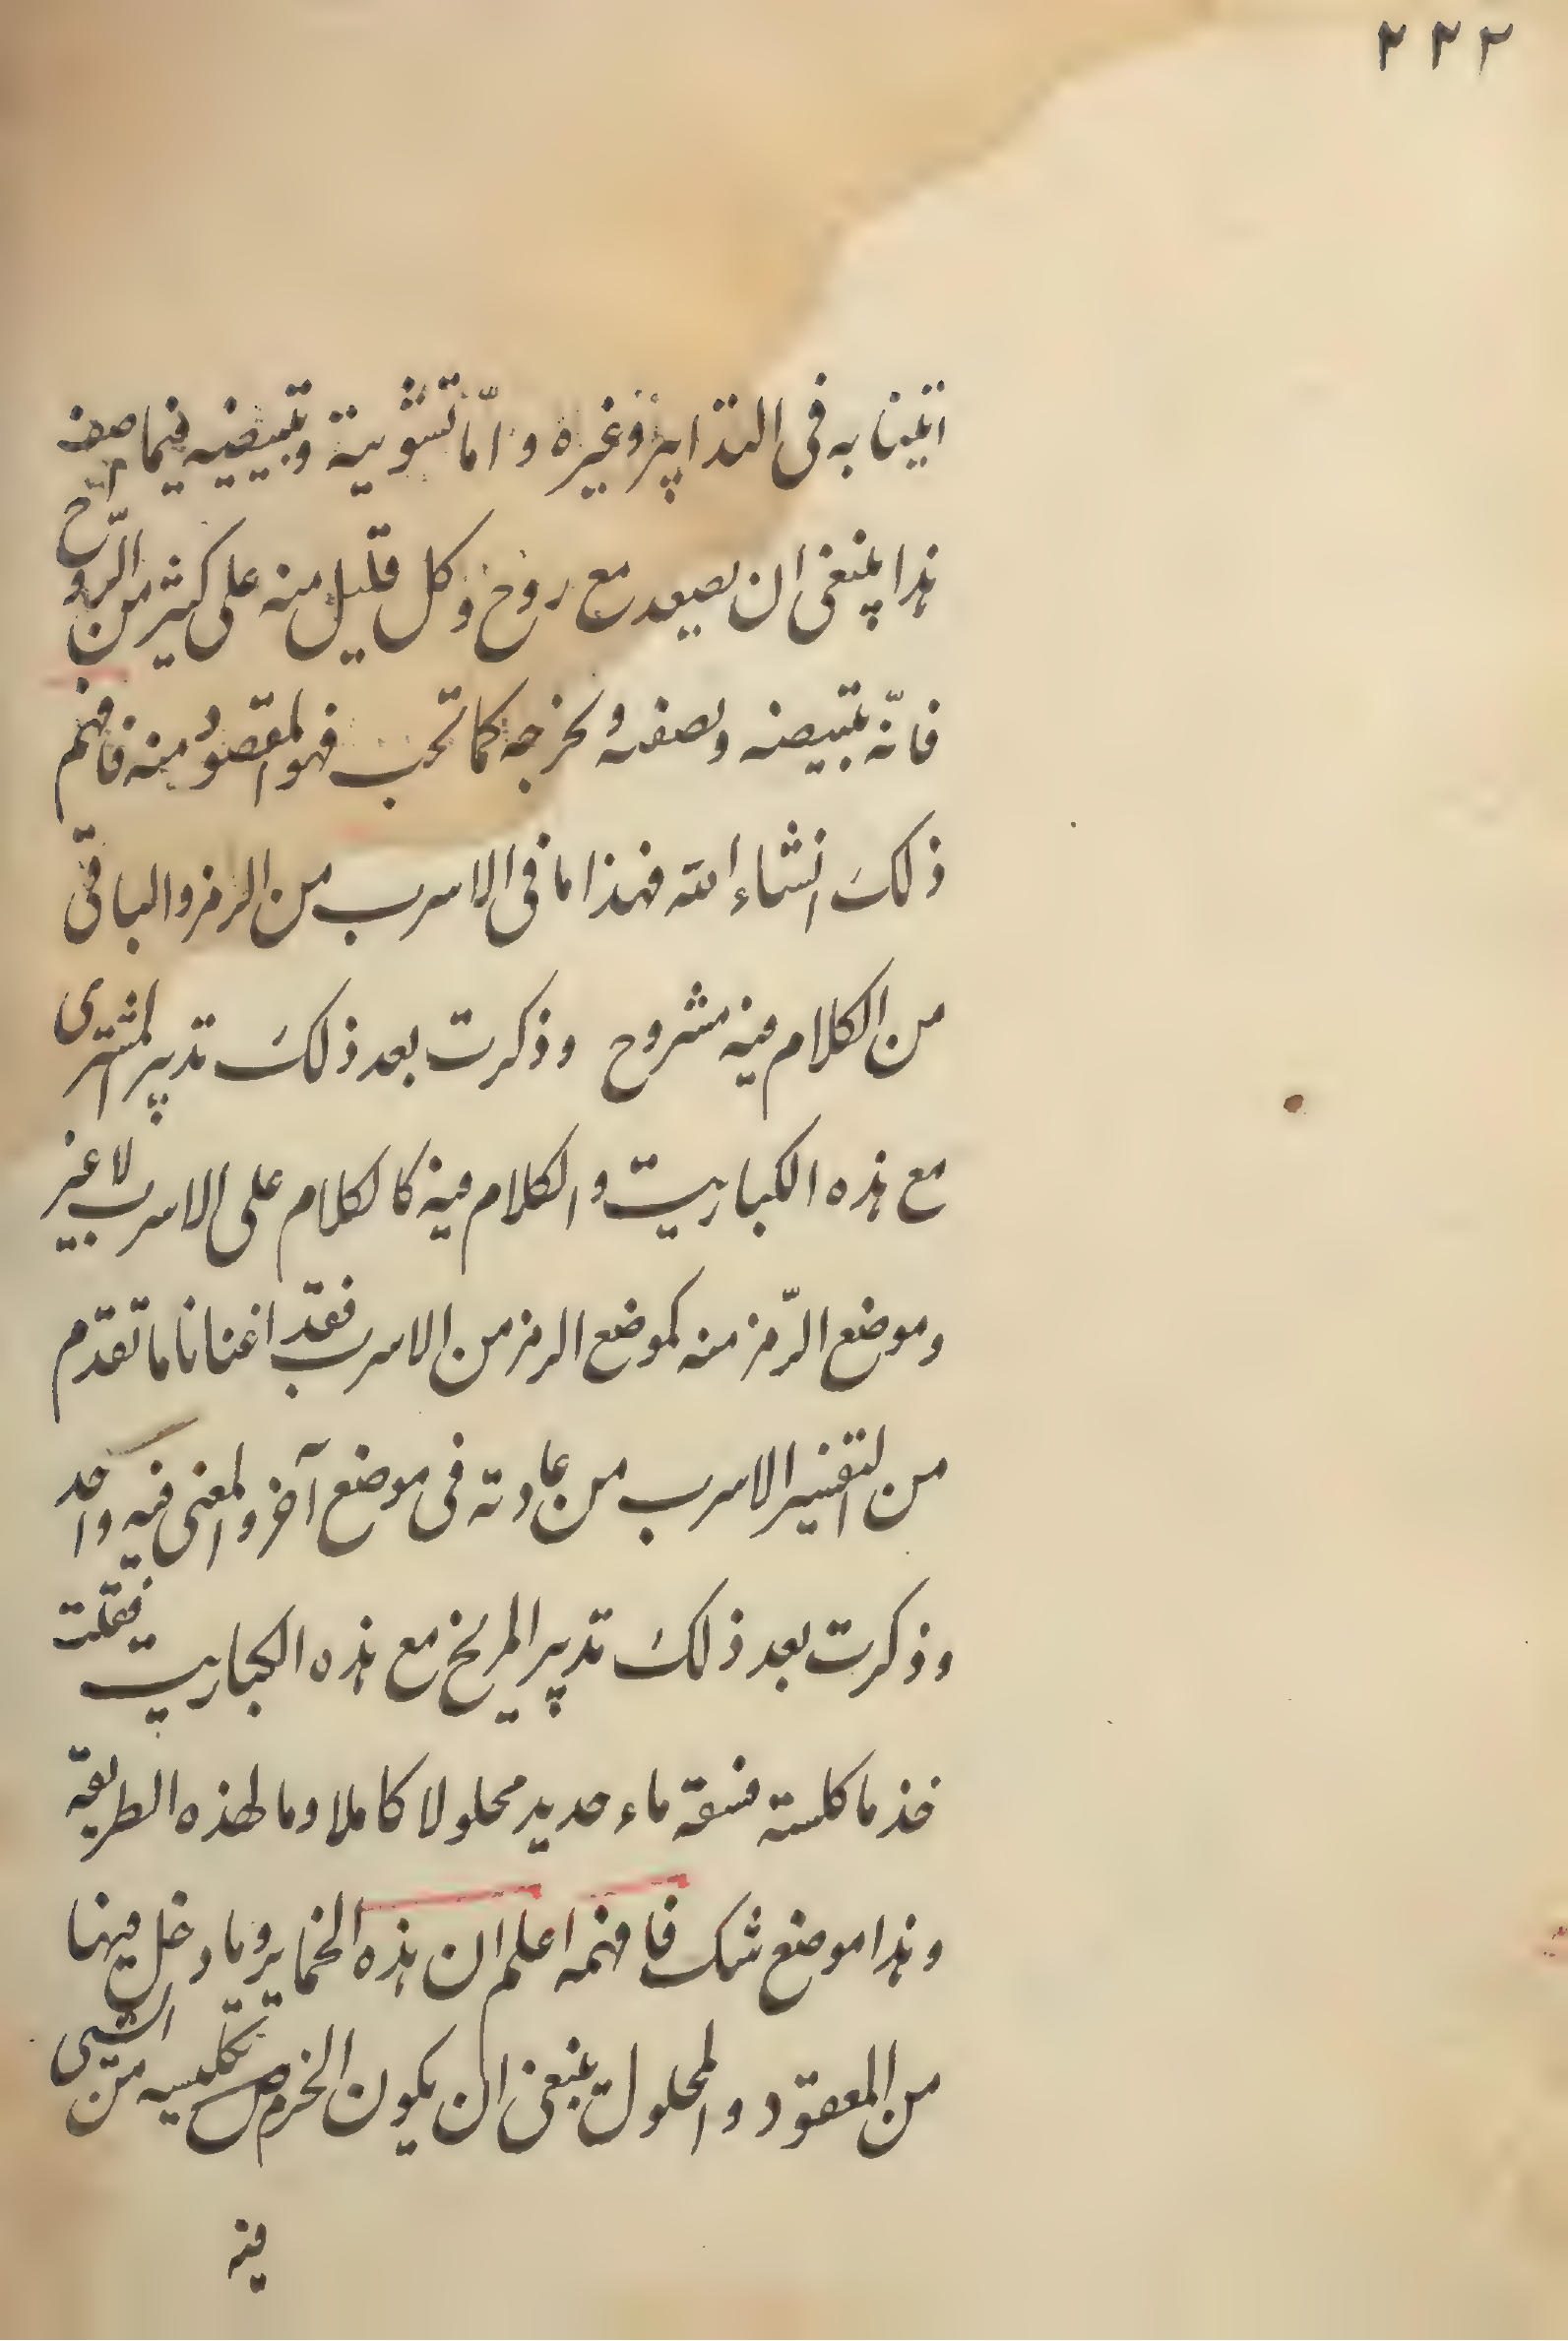 ٢٢٢
اتينا به فى التدابير وغيره وامّا تشوية وتبيضيه فيما صفه
هذا ينبغى ان يصعد مع روح وكل قليل منه على كثير من الرّواح
فانّه بتبيضه وبصفه وبخرجه كما تحب فهو المقصود منه فافهم
ذلك انشاء الله فهذا ما فى الاسرب من الرمز والباقى
من الكلام فيه مشروح وذكرت بعد ذلك تدبير المشترى
مع هذه الكباريت والكلام فيه كالكلام على الاسرب لا غير
وموضع الرّمز منه كموضع الرمز من الاسرب فقد اغنانا ما تقدم
من التفسير الاسرب من عادته فى موضع آخر والمعنى فيه واحد
وذكرت بعد ذلك تدبير المريخ مع هذه الكباريت فقلت
خذ ما كلسته فسقه ماء حديد محلولا كاملا وما لهذه الطريقه
وهذا موضع شك فافهمه اعلم ان هذه الخماير وما دخل فيها
من المعقود والمحلول ينبغى ان يكون تكليسه من الشىى
فيه